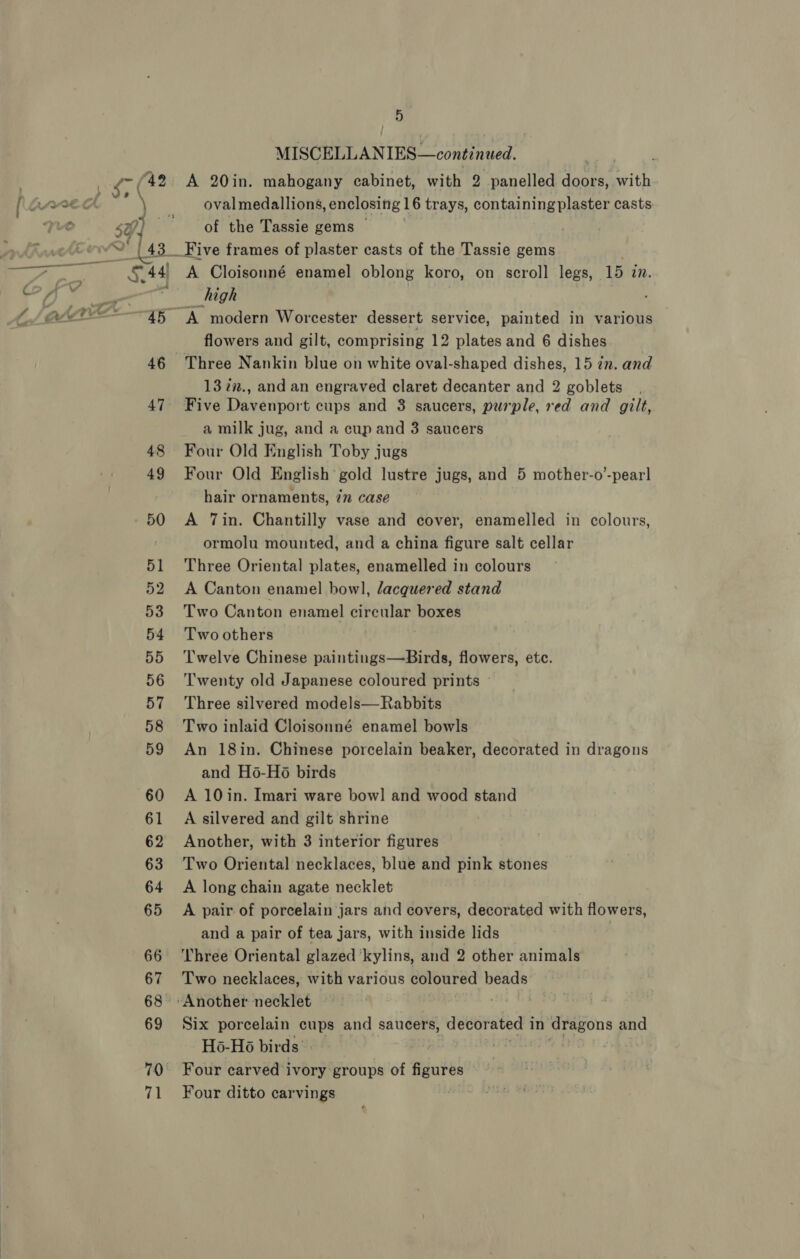 5
MISCELLANIES—continued.
42 A 20in. mahogany cabinet, with 2 panelled doors, with
oval medallions, enclosing 16 trays, containing plaster casts
of the Tassie gems
43 Five frames of plaster casts of the Tassie gems
44 A Cloisonné enamel oblong koro, on scroll legs, 15 in.
high
45 A modern Worcester dessert service, painted in various
flowers and gilt, comprising 12 plates and 6 dishes
46 Three Nankin blue on white oval-shaped dishes, 15 in. and
13 in., and an engraved claret decanter and 2 goblets
47 Five Davenport cups and 3 saucers, purple, red and gilt,
a milk jug, and a cup and 3 saucers
48 Four Old English Toby jugs
49 Four Old English gold lustre jugs, and 5 mother-o'-pearl
hair ornaments, in case
50 A 7in. Chantilly vase and cover, enamelled in colours,
ormolu mounted, and a china figure salt cellar
51 Three Oriental plates, enamelled in colours
52 A Canton enamel bowl, lacquered stand
53 Two Canton enamel circular boxes
54 Two others
55 Twelve Chinese paintings—Birds, flowers, etc.
56 Twenty old Japanese coloured prints
57 Three silvered models—Rabbits
58 Two inlaid Cloisonné enamel bowls
59 An 18in. Chinese porcelain beaker, decorated in dragons
and Hó-Hó birds
60 A 10in. Imari ware bowl and wood stand
61 A silvered and gilt shrine
62 Another, with 3 interior figures
63 Two Oriental necklaces, blue and pink stones
64 A long chain agate necklet
65 A pair of porcelain jars and covers, decorated with flowers,
and a pair of tea jars, with inside lids
66 Three Oriental glazed kylins, and 2 other animals
67 Two necklaces, with various coloured beads
68 Another necklet
69 Six porcelain cups and saucers, decorated in dragons and
Hó-Hó birds
70 Four carved ivory groups of figures
71 Four ditto carvings